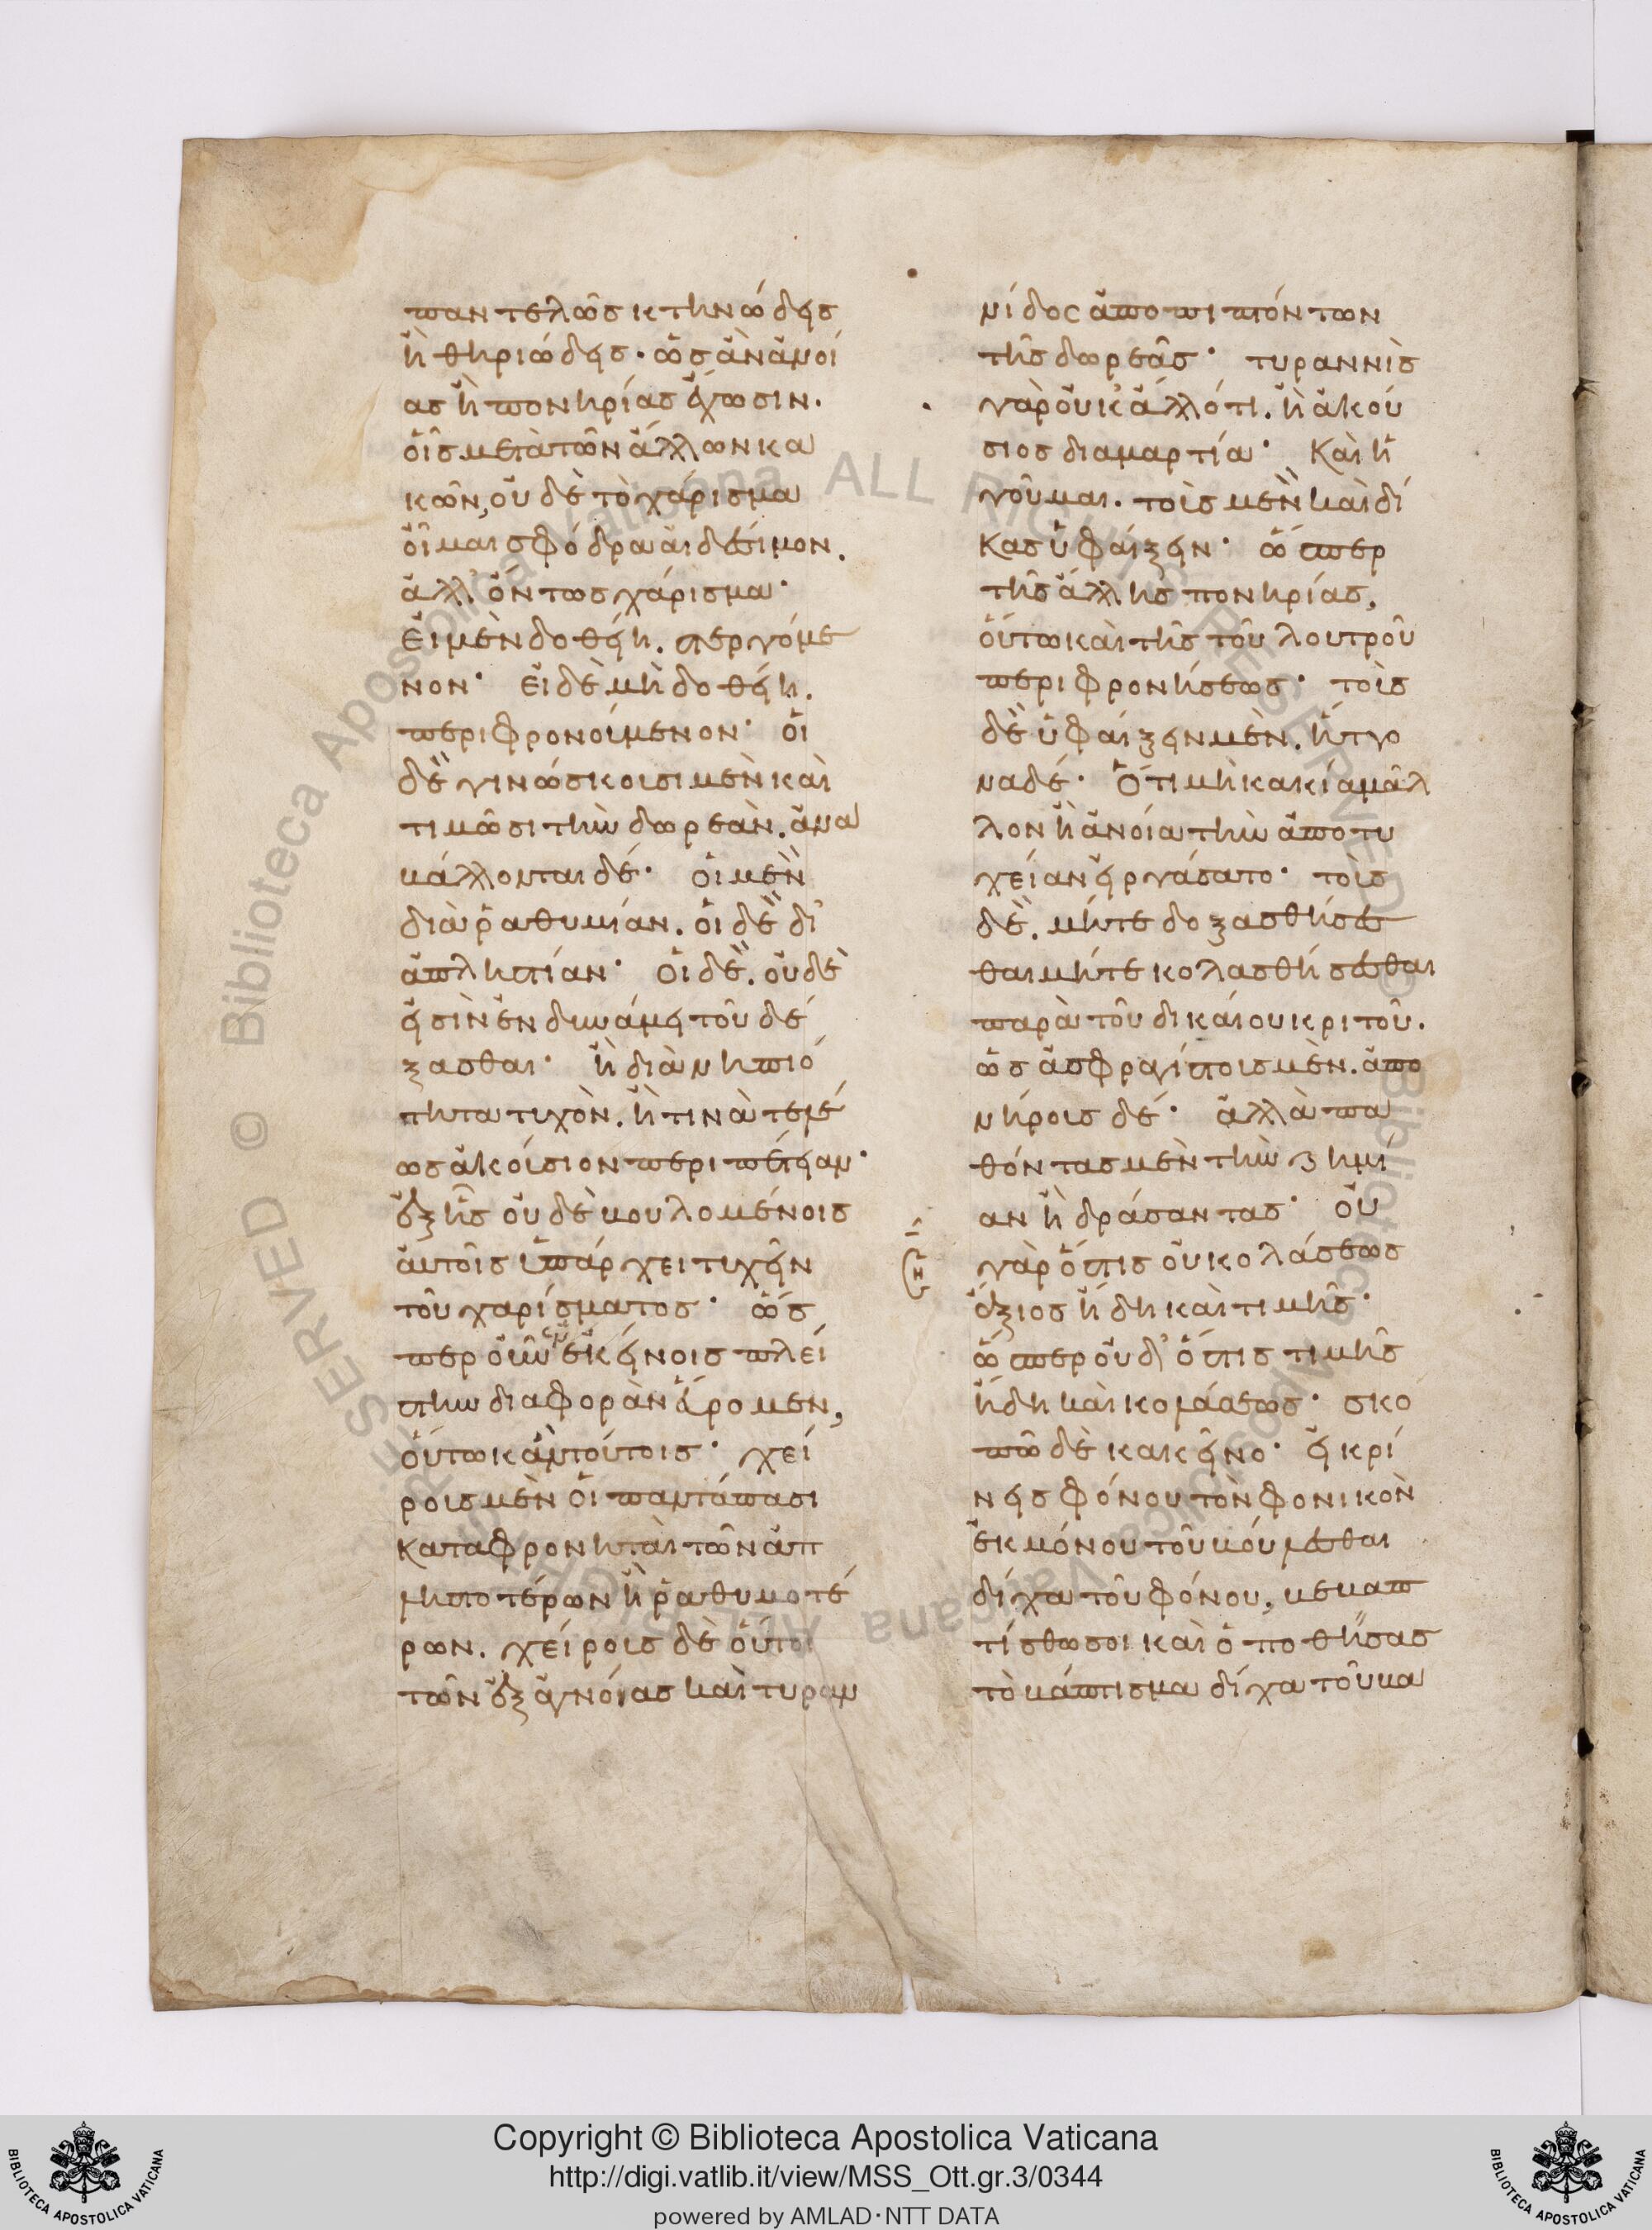 παντελῶς κτηνώδεις
ἢ θηριώδεις· ὡς ἂν ἀνοί
ας ἢ πονηρίας ἔχωσιν.
οἷς μετὰ τῶν ἄλλων κα
κῶν, οὐδὲ τὸ χάρισμα
οἶμαι σφόδρα αἰδέσιμον.
ἀλλ' ὄντως χάρισμα·
εἰ μὲν δοθείη. στεργόμε
νον· εἰ δὲ μὴ δοθείη.
περιφρονούμενον· οἱ
δὲ γινώσκουσι μὲν καὶ
τιμῶσι τὴν δωρεὰν. ἀνα
βάλλονται δέ· οἱ μὲν
διὰ ῥαθυμίαν. οἱ δὲ δι'
ἀπληστίαν· οἱ δὲ. οὐδὲ
εἰσὶν ἐν δυνάμει τοῦ δέ
ξασθαι· ἢ διὰ νηπιό
τητα τυχὸν. ἤ τινα τελέ
ως ἀκούσιον περιπέτειαν·
ἐξ ἧς οὐδὲ βουλομένοις
αὐτοῖς ὑπάρχει τυχεῖν
τοῦ χαρίσματος· ὥσ
περ οὖν ἐν ἐκείνοις πλεί
στην διαφορὰν εὕρομεν,
οὕτω κἀν τούτοις· χεί
ρους μὲν οἱ παντάπασι
καταφρονηταὶ τῶν ἀπ
ληστοτέρων ἢ ῥαθυμοτέ
ρων. χείρους δὲ οὗτοι
τῶν ἐξ ἀγνοίας καὶ τυραν
νίδος ἀποπιπτόντων
τῆς δωρεᾶς· τυραννὶς
γὰρ οὐκ ἄλλό τι. ἢ ἀκού
σιος διαμαρτία· Καὶ ἡ
γοῦμαι. τοὺς μὲν καὶ δί
κας ὑφέξειν· ὥσπερ
τῆς ἄλλης πονηρίας,
οὕτω καὶ τῆς τοῦ λουτροῦ
περιφρονήσεως· τοὺς
δὲ ὑφέξειν μὲν. ἥττο
να δέ· Ὅτι μὴ κακία μᾶλ
λον ἢ ἀνοία τὴν ἀποτυ
χείαν εἰργάσατο· τοὺς
δὲ. μήτε δοξασθήσεσ
θαι μήτε κολασθήσεσθαι
παρὰ τοῦ δικαίου κριτοῦ.
ὡς ἀσφραγίστους μὲν. ἀπο
νήρους δέ· ἀλλὰ πα
θόντας μὲν τὴν ζημί
αν ἢ δράσαντας· οὐ
γὰρ ὅστις οὐ κολάσεως
ἄξιος ἤδη καὶ τιμῆς·
ὥσπερ οὐδ' ὅστις τιμῆς
ἤδη καὶ κολάσεως· σκο
πῶ δὲ κακεῖνο· εἰ κρί
νεις φόνου τὸν φονικὸν
ἐκ μόνου τοῦ βούλεσθαι
δίχα τοῦ φόνου, βεβαπ
τίσθω σοι καὶ ὁ ποθήσας
τὸ βάπτισμα δίχα τοῦ βα
Copyright © Biblioteca Apostolica Vaticana
http://digi.vatlib.it/view/MSS_Ott.gr.3/0344
powered by AMLAD·NTT DATA